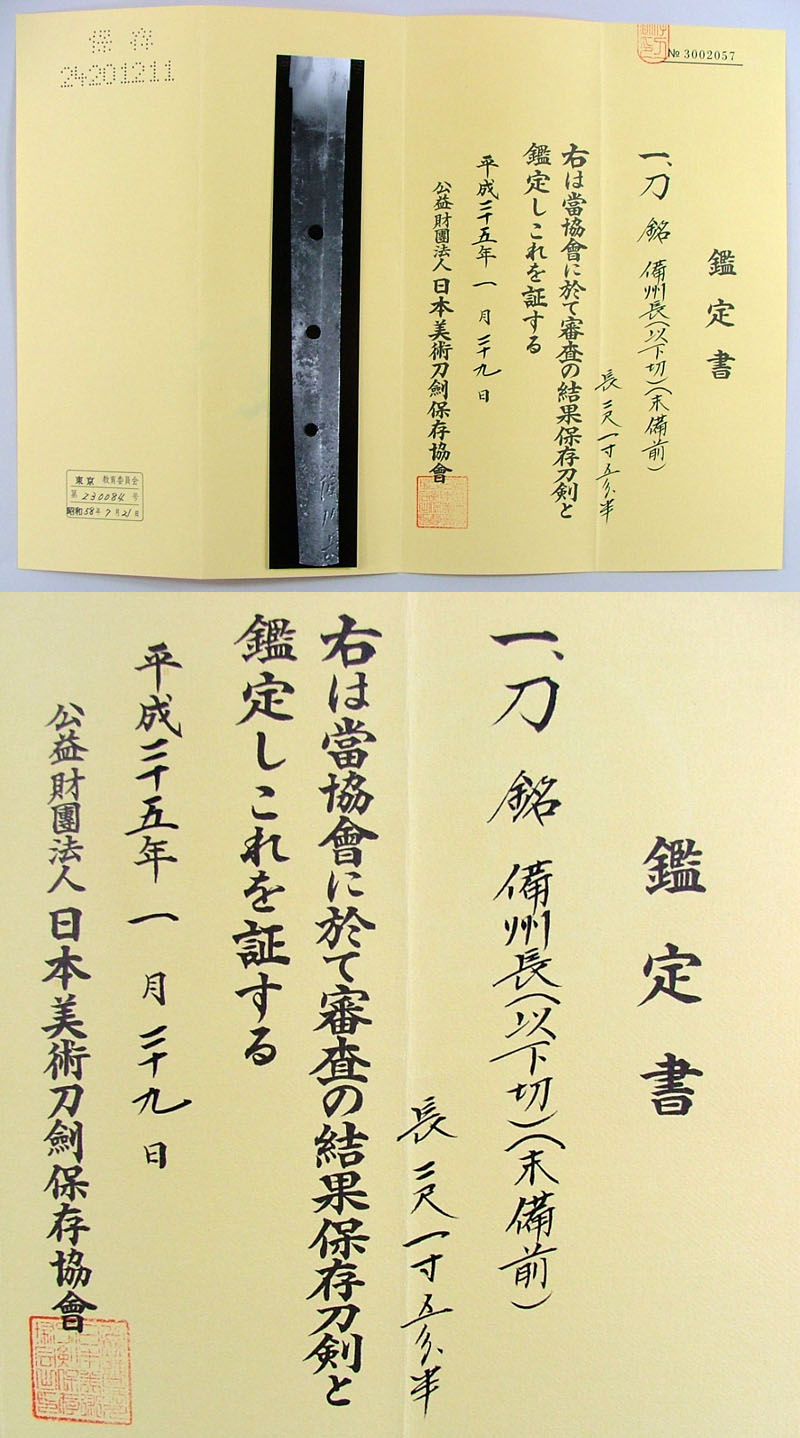 № 3002057
鑑定書
一、刀 銘 備州長(以下切)(末備前)
長 二尺一寸五分半
右は當協會に於て審査の結果保存刀劍と
鑑定しこれを証する
平成二十五年 一 月 二十九 日
公益財團法人 日本美術刀劍保存協會
保存
24201211
東京 教育委員会
第 230084 号
昭和58年7月21日
鑑定書
一、刀 銘 備州長(以下切)(末備前)
長 二尺一寸五分半
右は當協會に於て審査の結果保存刀劍と
鑑定しこれを証する
平成二十五年 一 月 二十九 日
公益財團法人 日本美術刀劍保存協會